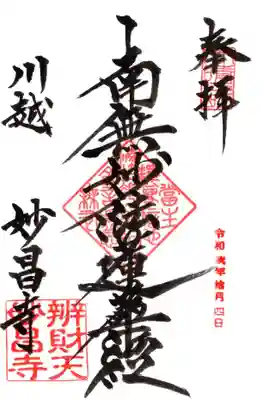 奉拝
令和 弐年 拾月 四日
南無妙法蓮華経
川越
妙昌寺
辨財天
妙昌寺